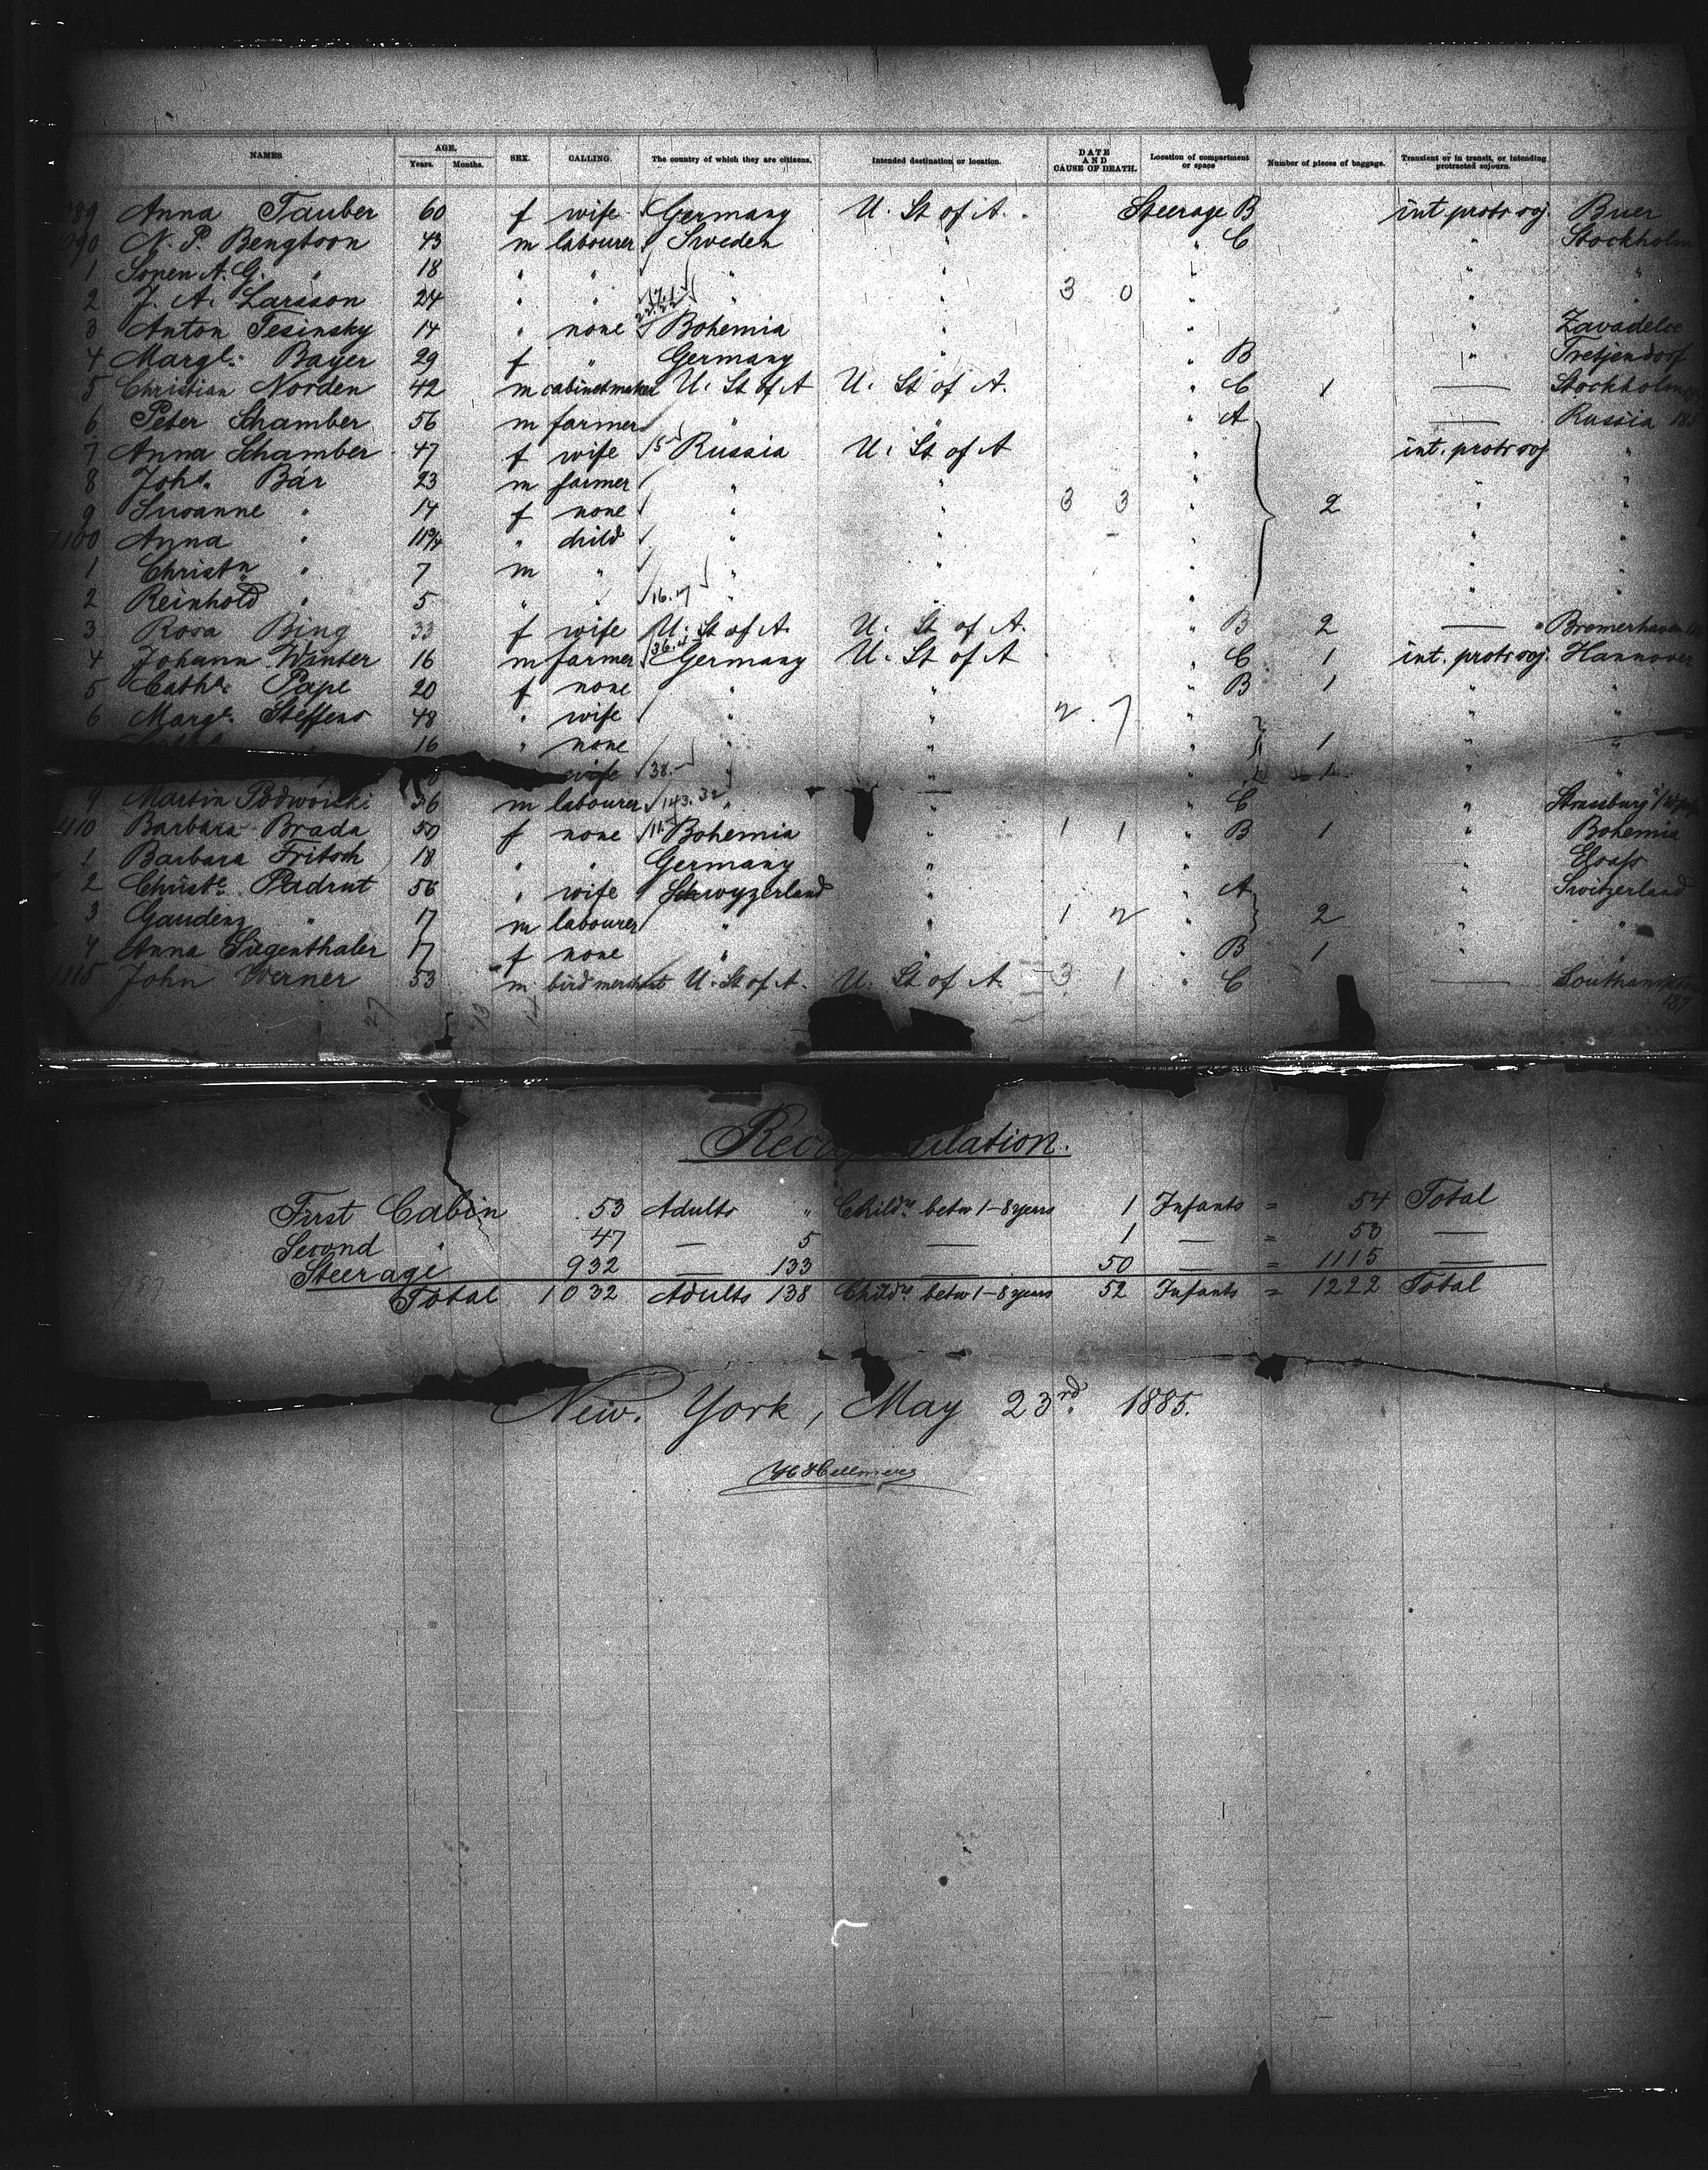 NAMES AGE. Years. Months. SEX. CALLING. The country of which they are citizens. Intended destination or location. DATE AND CAUSE OF DEATH. Location of compartment or space Number of pieces of baggage. Transient or in transit, or intending protracted sojourn.
089 Anna Tauber 60 f wife Germany U. St of A. Steerage B int. protr soj. Buer
090 N. P. Bengtson 43 m labourer Sweden " " C " Stockholm
1 A. G. " 18 " " " " " " "
2 J. A. Larsson 24 " " " " 3 0 " " "
3 Anton Tesinsky 14 " none Bohemia " " "
4 Margt. Bayer 29 f " Germany " " B "
5 Christian Norden 42 m cabinetmaker U. St of A U. St of A. " C 1 — Stockholm
6 Peter Schamber 56 m farmer " " " A — Russia
7 Anna Schamber 47 f wife 15 Russia U. St of A " int. protr soj "
8 Johs. Bär 23 m farmer " " " " "
9 Susanne " 14 f none " " 3 3 " 2 " "
1100 Anna " 11 " child " " " " "
1 Christn " 7 m " " " " " "
2 Reinhold " 5 " " 16.17 " " " "
3 Rosa Bing 33 f wife U. St of A. U. St of A. " B 2 — Bremerhaven
4 Johann Winter 16 m farmer Germany U. St of A " C 1 int. protr soj. Hannover
5 Cathe. Pape 20 f none " " " B 1 " "
6 Marge. Steffens 48 " wife " " 2 7 " " "
16 " none " " " 1 " "
wife 38 " " 1 " "
9 Martin Podwoiski 36 m labourer 143.32 " " " C " Strassburg
1110 Barbara Brada 50 f none 11 Bohemia " 1 1 " B 1 " Bohemia
1 Barbara Fritsch 18 " " Germany " " Elsass
2 Christe. Padrut 56 " wife Schwyzerland " " A " Switzerland
3 Gaudenz " 17 m labourer " " 1 2 " 2 " "
4 Anna Siegenthaler 17 f none " " B 1 " "
1115 John Werner 53 m bird merchant U. St of A. U. St of A. 3 1 " C — Southampton
First Cabin 53 Adults " Childn betw 1-8 years 1 Infants = 54 Total
Second " 47 — 5 — 1 — = 53 —
Steerage 932 — 133 — 50 — = 1115 —
Total 1032 Adults 138 Childn betw 1-8 years 52 Infants = 1222 Total
New York, May 23rd. 1885.